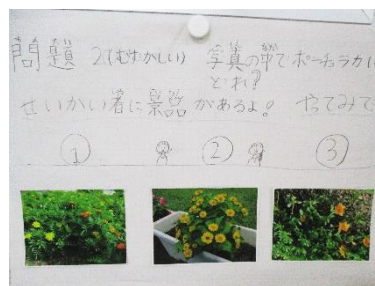 問題 2(むずかしい) 写真の中でポーチュラカは
どれ?
せいかい者に景品があるよ! やってみて
① ② ③